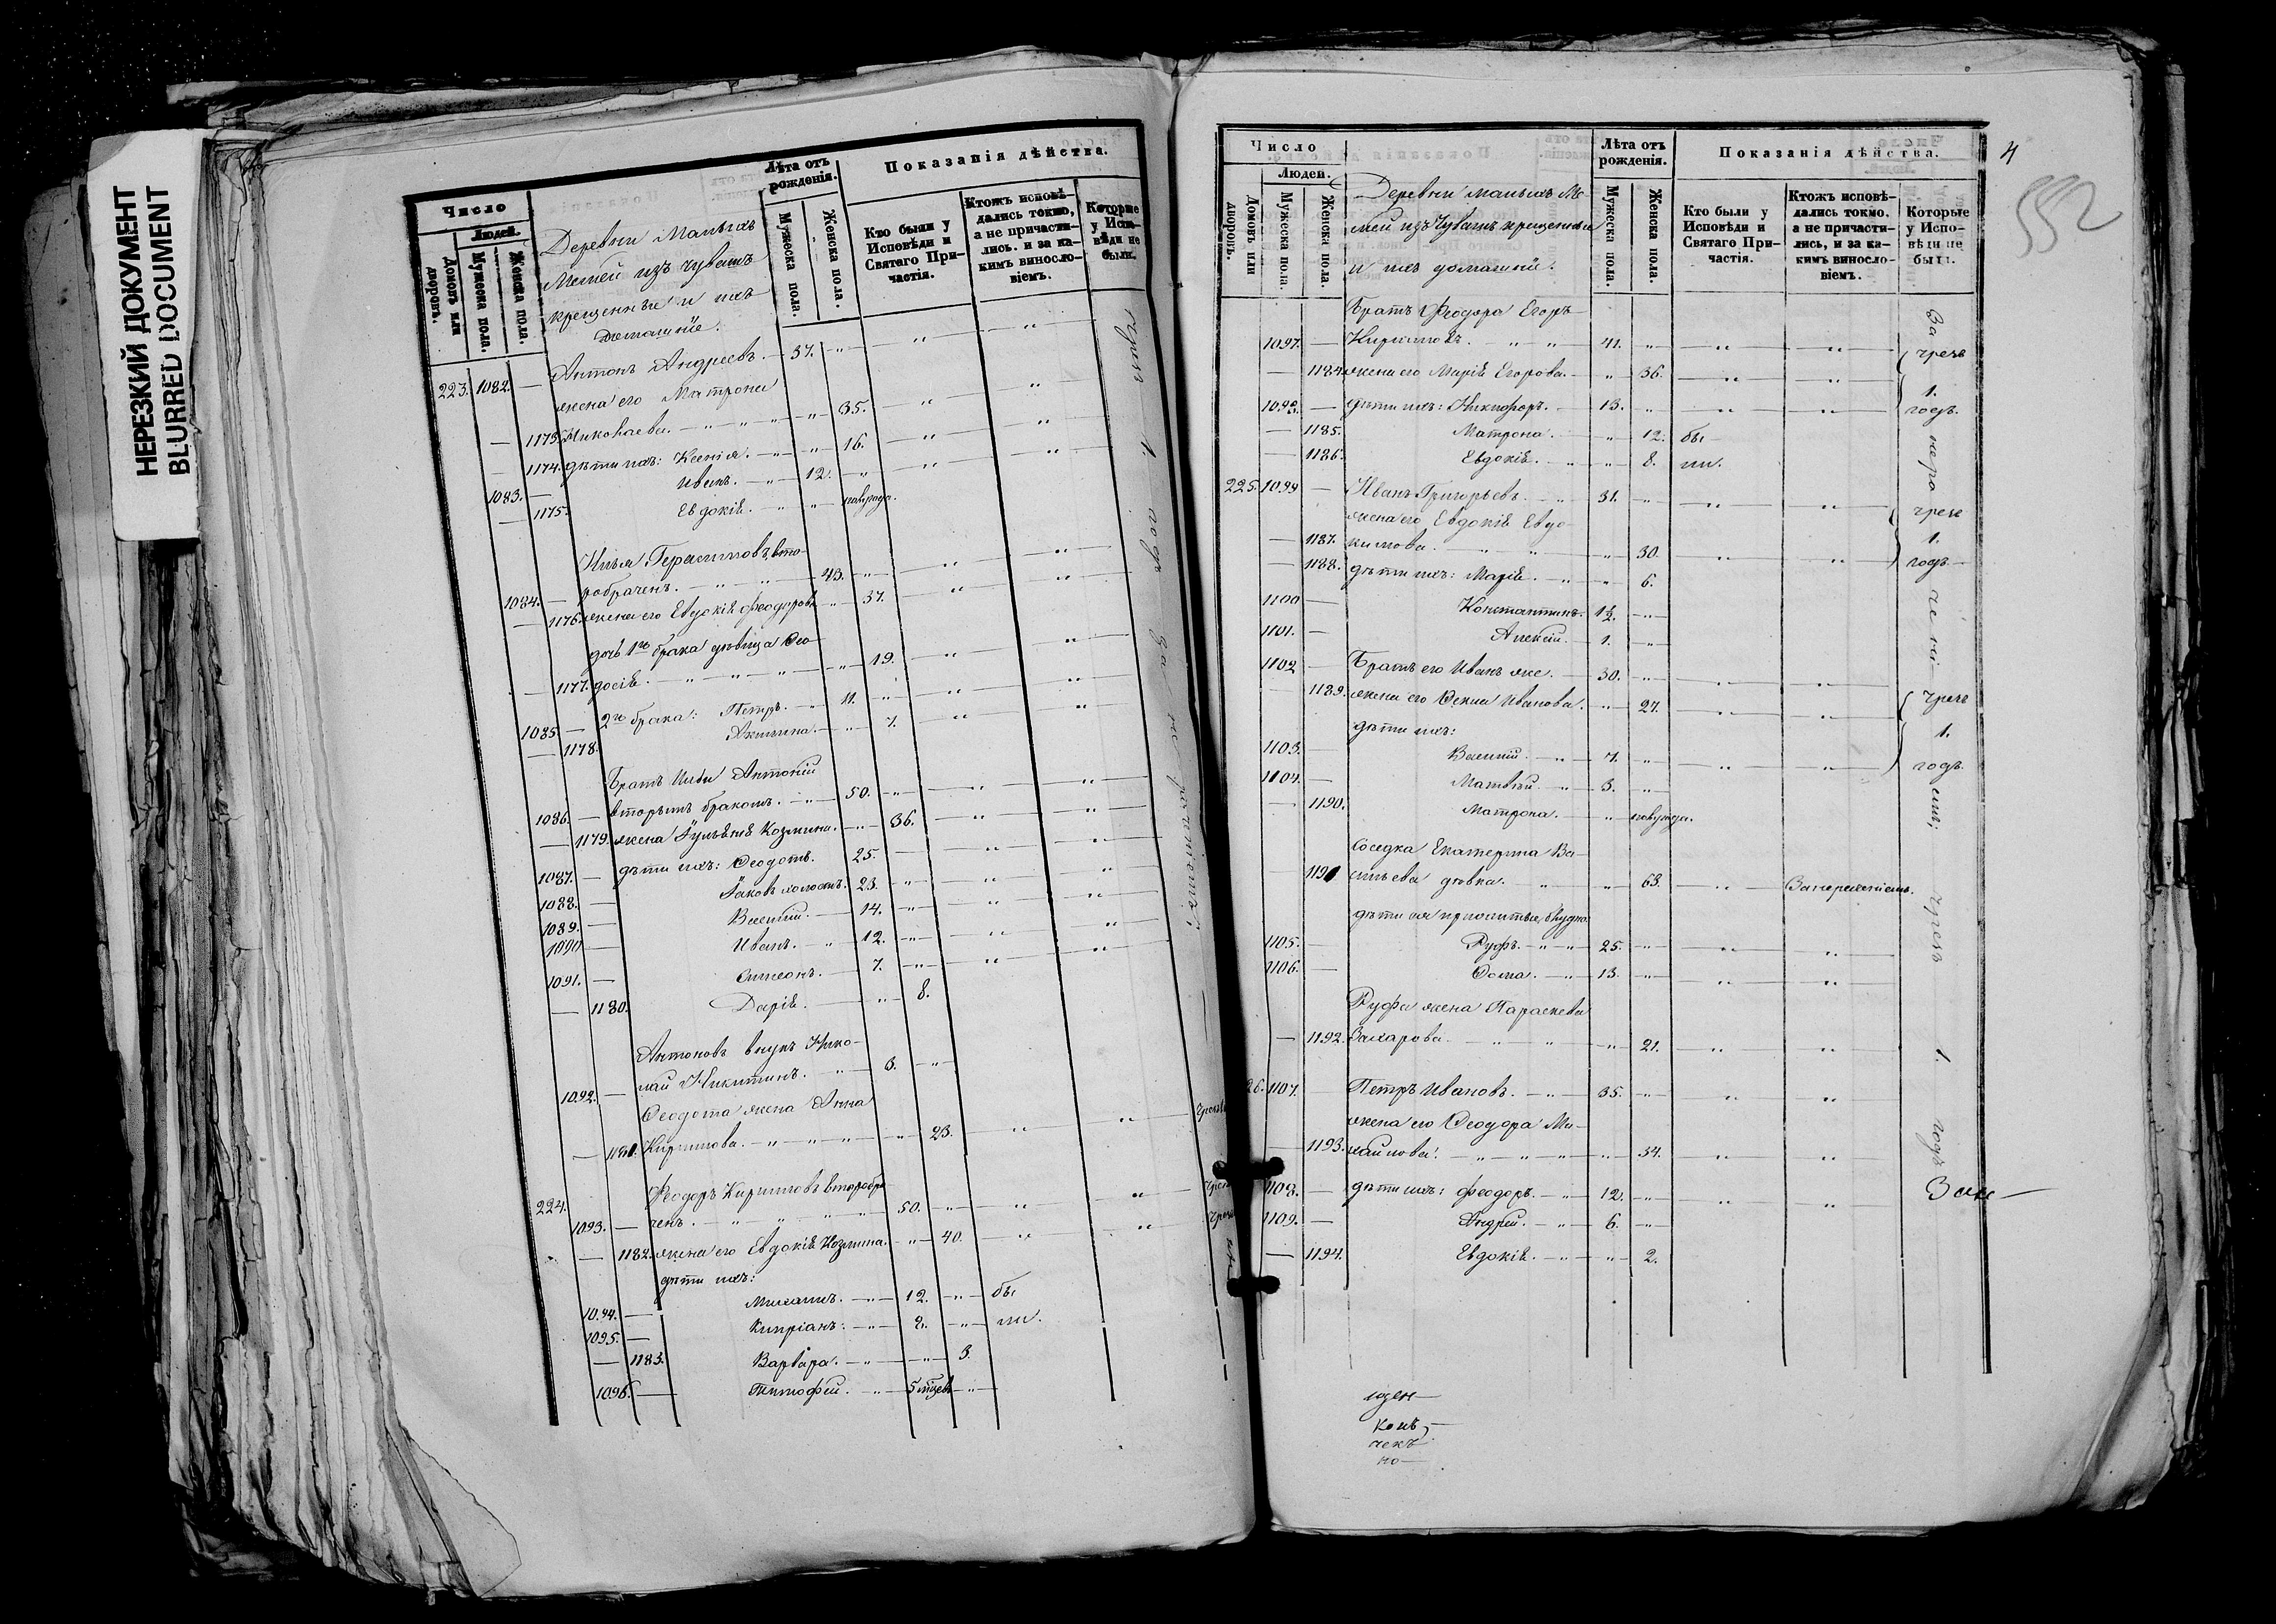 НЕРЕЗКИЙ ДОКУМЕНТ
BLURRED DOCUMENT
Число
Людей.
Домовъ или дворовъ.
Мужеска пола.
Женска пола.
Деревни Малыхъ
Мемей изъ чувашъ
крещенные и ихъ
домашніе.
Лѣта отъ рожденія.
Мужеска пола.
Женска пола.
Показанія дѣйства.
Кто были у Исповѣди и Святаго При-
частія.
Ктожъ исповѣ-
дались токмо,
а не причасти-
лись. и за ка-
кимъ винosло-
віемъ.
Которые
у Испо-
вѣди не
были.
223. 1082. — Антонъ Андреевъ. — 37. — „
жена его Матрона
— 1173. Николаева. — „ — „ — 35. — „
— 1174. дѣти ихъ: Ксенія. — „ — 16. — „
1083. — Иванъ. — „ — 12. — „
— 1175. Евдокія. — „ — „ — полугода.
Илья Герасимовъ, вто-
1084. — робраченъ. „ „ — 43. — „
— 1176. жена его Евдокія Феодорова — „ — 37. — „
дочь 1го брака дѣвица Ѳео-
— 1177. досія. — „ — „ — „ — 19. — „
1085 — 2го брака: Петръ. — „ 11. — „
— 1178. Акилина. — „ — 7. „
Братъ Ильи Антоній
1086. — вторымъ бракомъ. — „ — 50. — „
— 1179. жена Іуліанія Козмина. — „ — 36. — „
1087. — дѣти ихъ: Ѳеодотъ. 25. — „
1088. — Іаковъ холостъ. 23. — „
1089. — Василій. — 14. — „
1090 — Иванъ. — „ — 12. — „
1091. — Симеонъ. — 7. — „
— 1180. Дарія. — „ — 8.
Антоновъ внукъ Нико-
1092. — лай Никитинъ. — „ — 3. — „
Ѳеодота жена Анна
— 1181. Кириллова. — „ — „ — „ — 23. „
224. Феодоръ Кирилловъ второбра
1093. — ченъ. — „ — „ — „ — 50. — „
— 1182. жена его Евдокія Козмина. — „ — 40. „
дѣти ихъ:
1094. — Михаилъ. — „ — 12. — „ — бы
1095. — Кипріанъ: — „ — 8. — „ — ли.
— 1183. Варвара. — „ — „ — 3.
1096. — Тимофей. — „ — 5 мцевъ — „ —
4
552
Число
Людей.
Домовъ или дворовъ.
Мужеска пола.
Женска пола.
Деревни Малыхъ Ме-
мей изъ Чувашъ крещенные
и ихъ домашніе.
Лѣта отъ рожденія.
Мужеска пола.
Женска пола.
Показанія дѣйства.
Кто были у
Исповѣди и
Святаго При-
частія.
Ктожъ исповѣ-
дались токмо.
а не причасти-
лись, и за ка-
кимъ винosло-
віемъ.
Которые
у Испо-
вѣди не
были.
Братъ Феодора Егоръ
1097. — Кирилловъ. — „ — „ — 41. — „
— 1184. жена его Марія Егорова. — „ — 36. — „
1098. — дѣти ихъ: Никифоръ. — 13. — „
— 1185. Матрона. — „ — 12. бы
— 1186. Евдокія. — „ — „ — 8. ли.
225. 1099 — Иванъ Григорьевъ. — „ 31. — „
жена его Евдокія Евдо-
— 1187. кимова. „ „ „ 30. — „
— 1188. дѣти ихъ: Марія. — „ — „ 6.
1100 — Константинъ. 12. — „
1101. — Алексій. — 1. — „
1102 — Братъ его Иванъ же. — 30. — „
1189. жена его Ѳекла Иванова. — „ — 27. — „
дѣти ихъ:
1103. — Василій. — „ — 7. — „
1104. — Матвѣй. — „ 3. — „
— 1190. Матрона. — „ полугода.
Соседка Екатерина Ва-
1191 сильева дѣвка. „ „ 63. — „ За
дѣти ея
1105. — Руфъ. — „ — „ 25. — „
1106. — Ѳома. — „ 13. — „
Руфа жена Параскева
— 1192. Захарова. „ „ „ 21. — „
26. 1107. — Петръ Ивановъ. — „ 35. — „
жена его Ѳеодора Ми-
1193. хайлова. — „ — „ — „ — 34. „
1108. — дѣти ихъ: Феодоръ. — „ 12. — „
1109. — Андрей. — „ 6. — „
— 1194. Евдокія. — „ — „ — 2.
чрезъ
1.
годъ.
чрезъ
1.
годъ
чрезъ
1.
годъ.
чрезъ 1. годъ